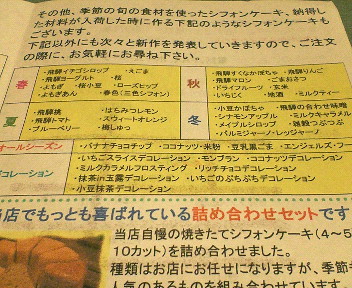 その他、季節の旬の食材を使ったシフォンケーキ、納得し
た材料が入荷した時に作る下記のようなシフォンケーキも
ございます。
下記以外にも次々と新作を発表していきますので、ご注文
の際に、お気軽にお尋ね下さい。
春
・飛騨イチゴシロップ ・えごま
・飛騨ヨーグルト ・桜
・よもぎ ・桜小豆 ・ローズヒップ
・よもぎあん ・春色(三色シフォン)
秋
・飛騨すくなかぼちゃ ・飛騨りんご
・飛騨マロン ・ごまおさつ
・ドライフルーツ ・玄米
・いちじく ・地酒 ・ミルクティー
夏
・飛騨桃 ・はちみつレモン
・飛騨トマト ・スウィートオレンジ
・ブルーベリー ・梅しゅっ
冬
・小豆かぼちゃ ・飛騨の合わせ味噌
・シナモンアップル ・ミルクキャラメル
・メイプルシロップ ・雑穀つぶつぶ
・パルミジャーノ・レッジャーノ
オールシーズン
・バナナチョコチップ ・ココナッツ・米粉 ・豆乳黒ごま ・エンジェルフー
デコレーション
・いちごスライスデコレーション ・モンブラン ・ココナッツデコレーション
・ミルクカラメルフロスティング ・リッチチョコデコレーション
・抹茶in玉露デコレーション ・いちごのぷちぷちデコレーション
・小豆抹茶デコレーション
当店でもっとも喜ばれている詰め合わせセットです
当店自慢の焼きたてシフォンケーキ(4〜5
10カット)を詰め合わせました。
種類はお店にお任せになりますが、季節
人気のあるものを組み合わせています。